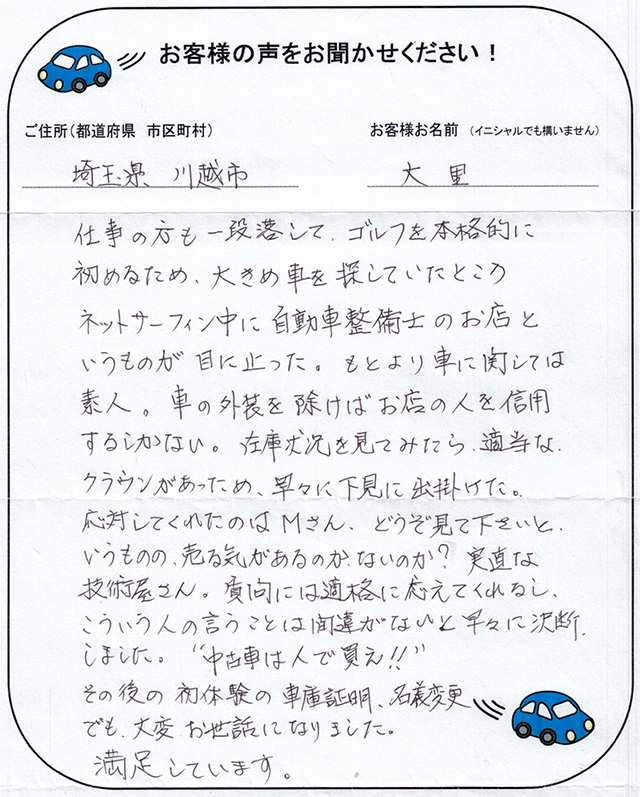 お客様の声をお聞かせください！
ご住所（都道府県　市区町村）
お客様お名前　（イニシャルでも構いません）
埼玉県　川越市
大里
仕事の方も一段落して、ゴルフを本格的に
初めるため、大きめ車を探していたところ
ネットサーフィン中に自動車整備士のお店と
いうものが目に止った。もとより車に関しては
素人。車の外装を除けばお店の人を信用
するしかない。在庫状況を見てみたら、適当な
クラウンがあったため、早々に下見に出掛けた。
応対してくれたのはMさん、どうぞ見て下さいと、
いうものの、売る気があるのか、ないのか？実直な
技術屋さん。質問には適格に応えてくれるし、
こういう人の言うことは間違がないと早々に決断
しました。“中古車は人で買え!!”
その後の初体験の車庫証明、名義変更
でも、大変お世話になりました。
満足しています。